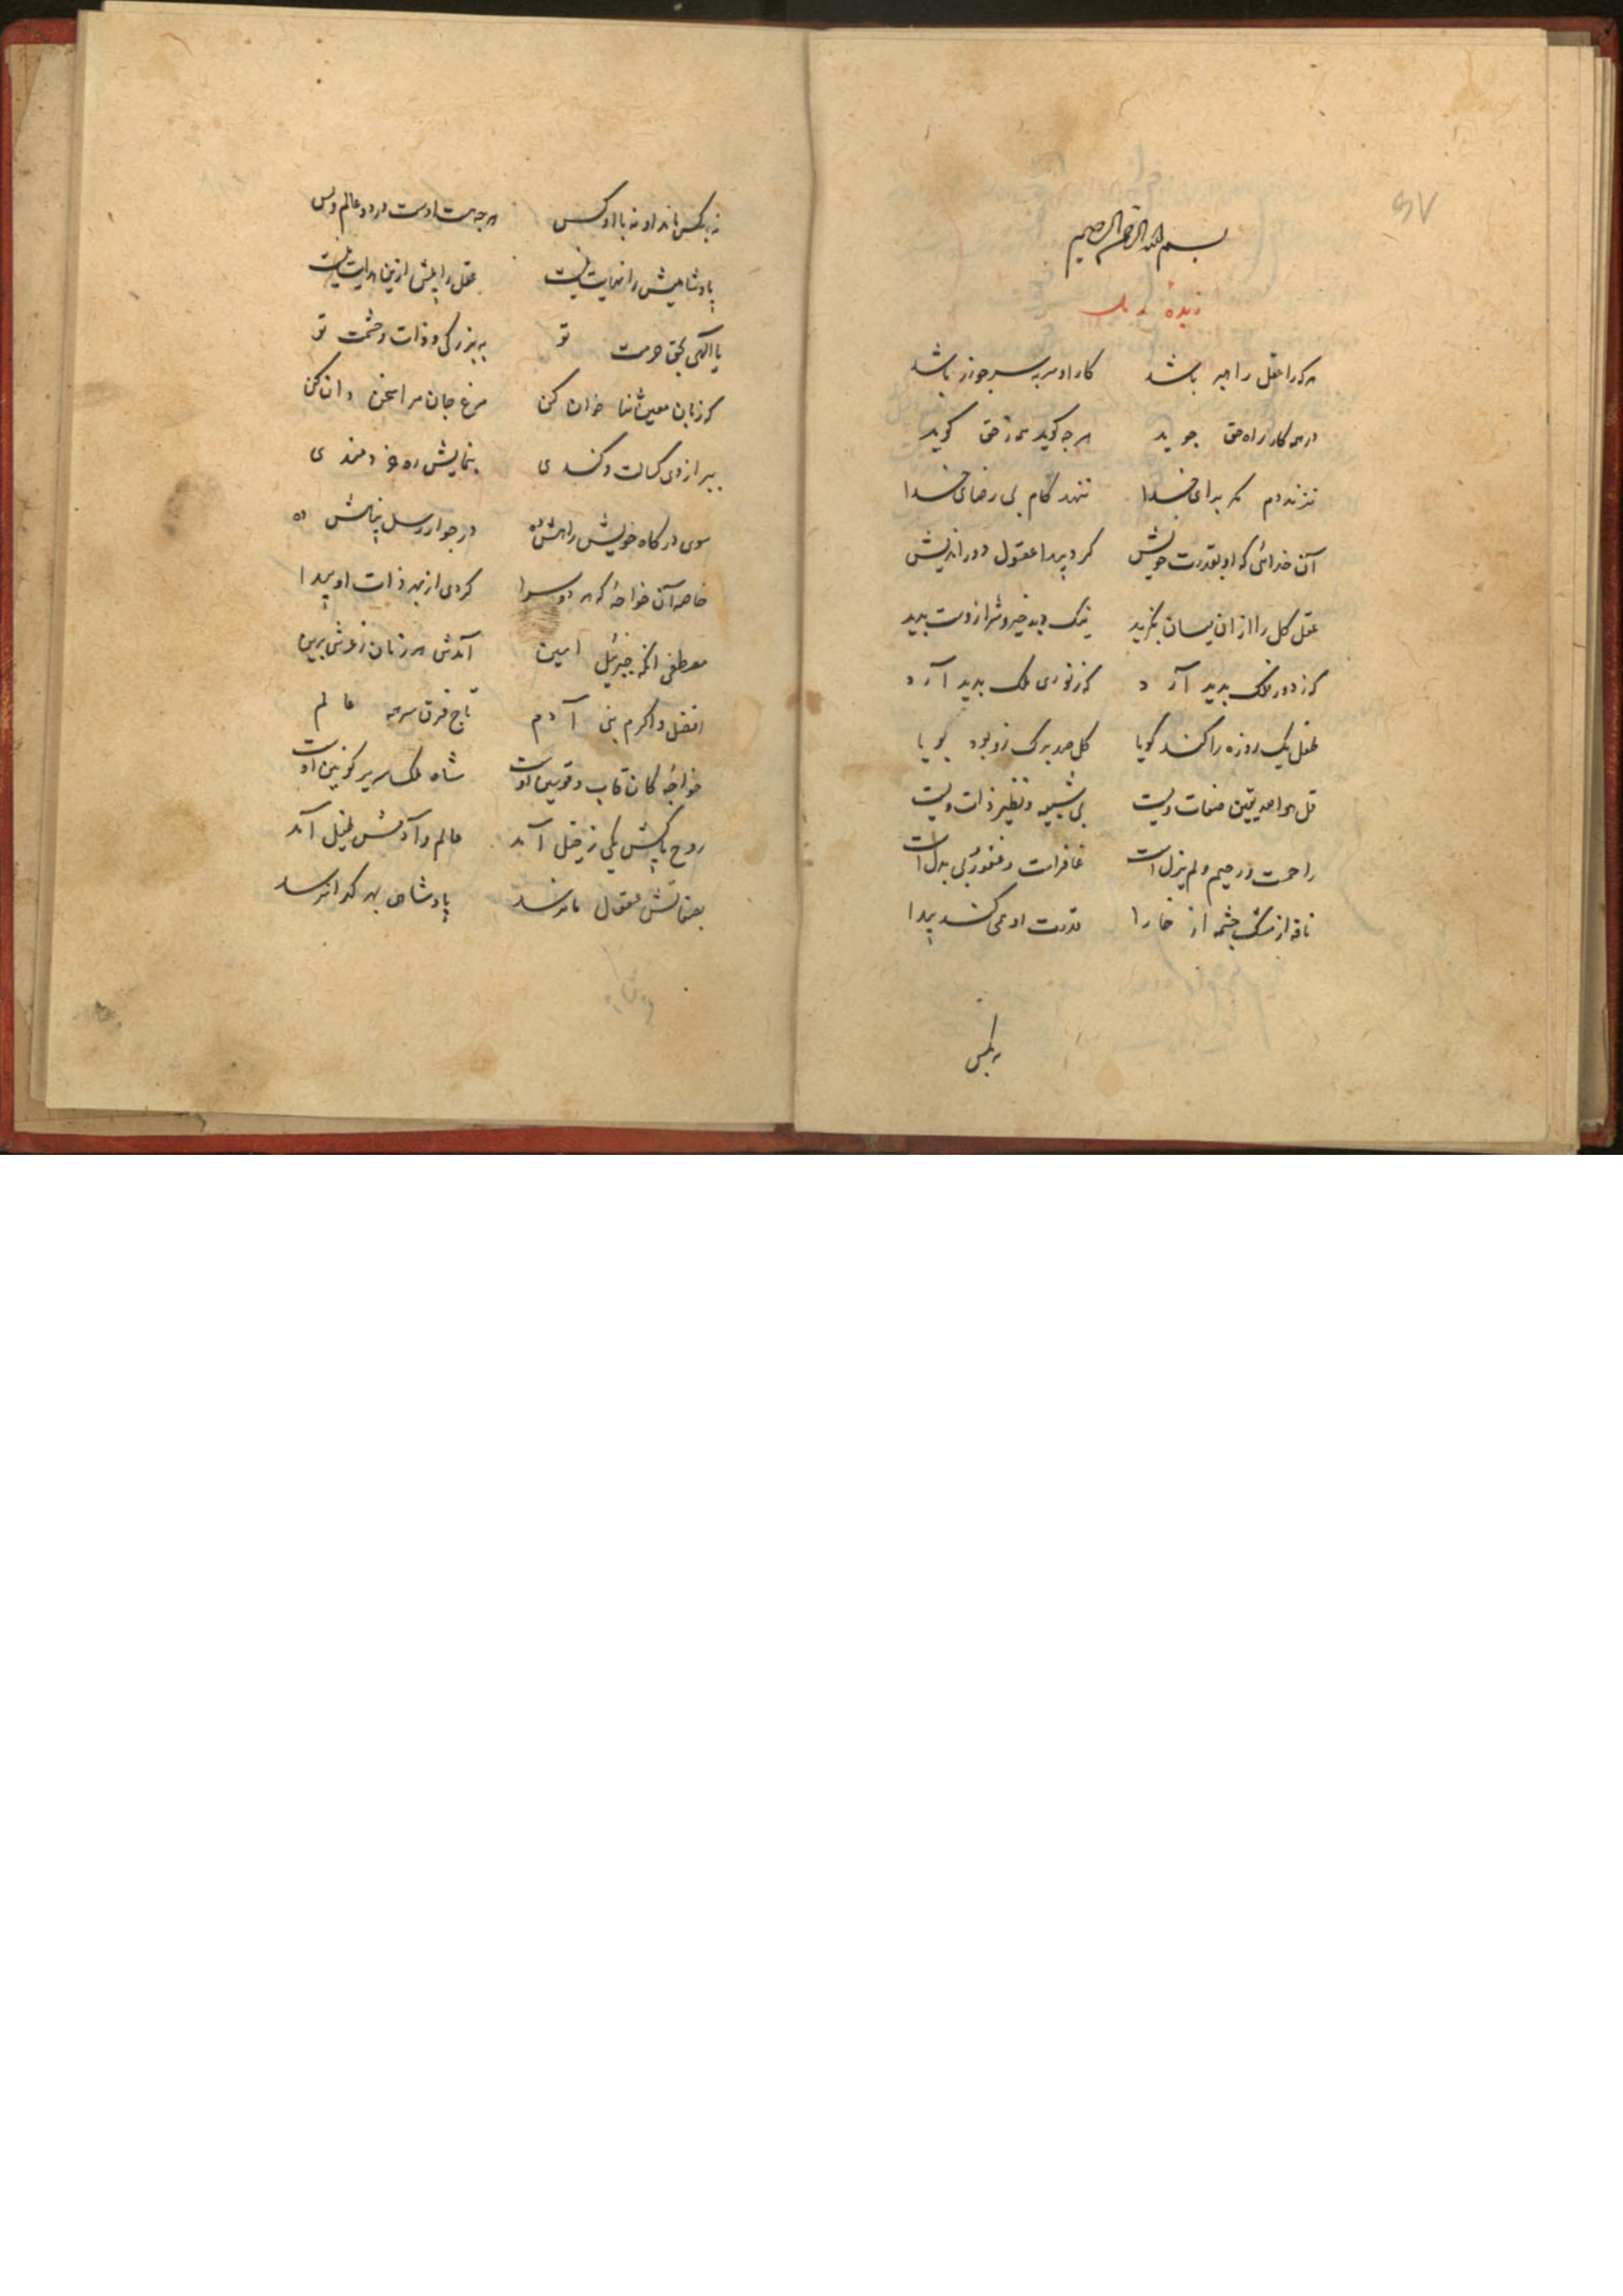 بسم الله الرحمن الرحیم
زبدهٔ
هرکرا عقل راهبر باشد کار او سربسر چوزر باشد
در همه کار راه حق جوید هرچه کوید همه زحق کوید
نزند دم مکر برای خدا ننهد کام بی رضای خدا
آن خدائی که او بقدرت خویش کرد پیدا عقول دوراندیش
عقل کل را از ان میان بکزید نیک وبد خیر وشر ازوست پدید
که ز دور فلک پدید آرد که ز نوری ملک پدید آرد
طفل یک روزه را کند کویا کل صد برک زو بود بویا
قل هو الله یقین صفات ویست بی شبیه ونظیر ذات ویست
راحمست ورحیم ولم یزل است غافرست وغفور بی بدل است
نافه از مشک چشمه از خارا قدرت او همی کند پیدا
نه بکس
نه بکس ماند او نه با او کس هرچه هست اوست در دو عالم وبس
پادشاهیش را نهایت نیست عقل را بیش ازین هدایت نیست
یا الهی بحق حرمت تو به بزرکی وذات وحشمت تو
که زبان معین ثنا خوان کن مرغ جان مرا سخن دان کن
ببر از وی کسالت وکندی بنمایش ره خردمندی
سوی درکاه خویش راهش ده در جوار رسل پناهش ده
خاصه آن خواجهٔ که هر دو سرا کردی از بهر ذات او پیدا
مصطفی انکه جبرئیل امین آمدش هر زمان زعرش برین
افضل واکرم بنی آدم تاج فرق سر همه عالم
خواجهٔ کان قاب وقوسین اوست شاه ملک سریر کونین اوست
روح پاکش یکی ز خیل آمد عالم وآدمش طفیل آمد
بصفاتش عقول ما نرسد پادشاهی بهر کدا نرسد